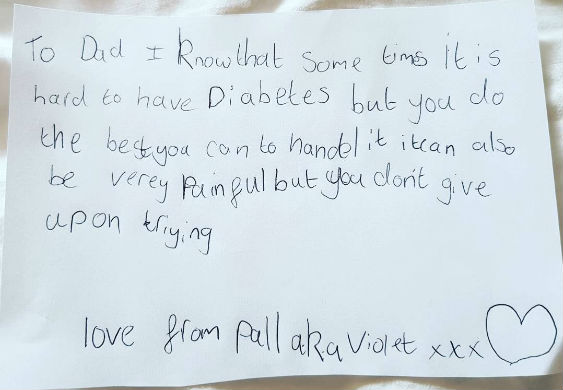 To Dad I Know that some tims it is
hard to have Diabetes but you do
the best you can to handel it it can also
be verey painful but you don't give
up on triying
love from pall aka Violet xxx